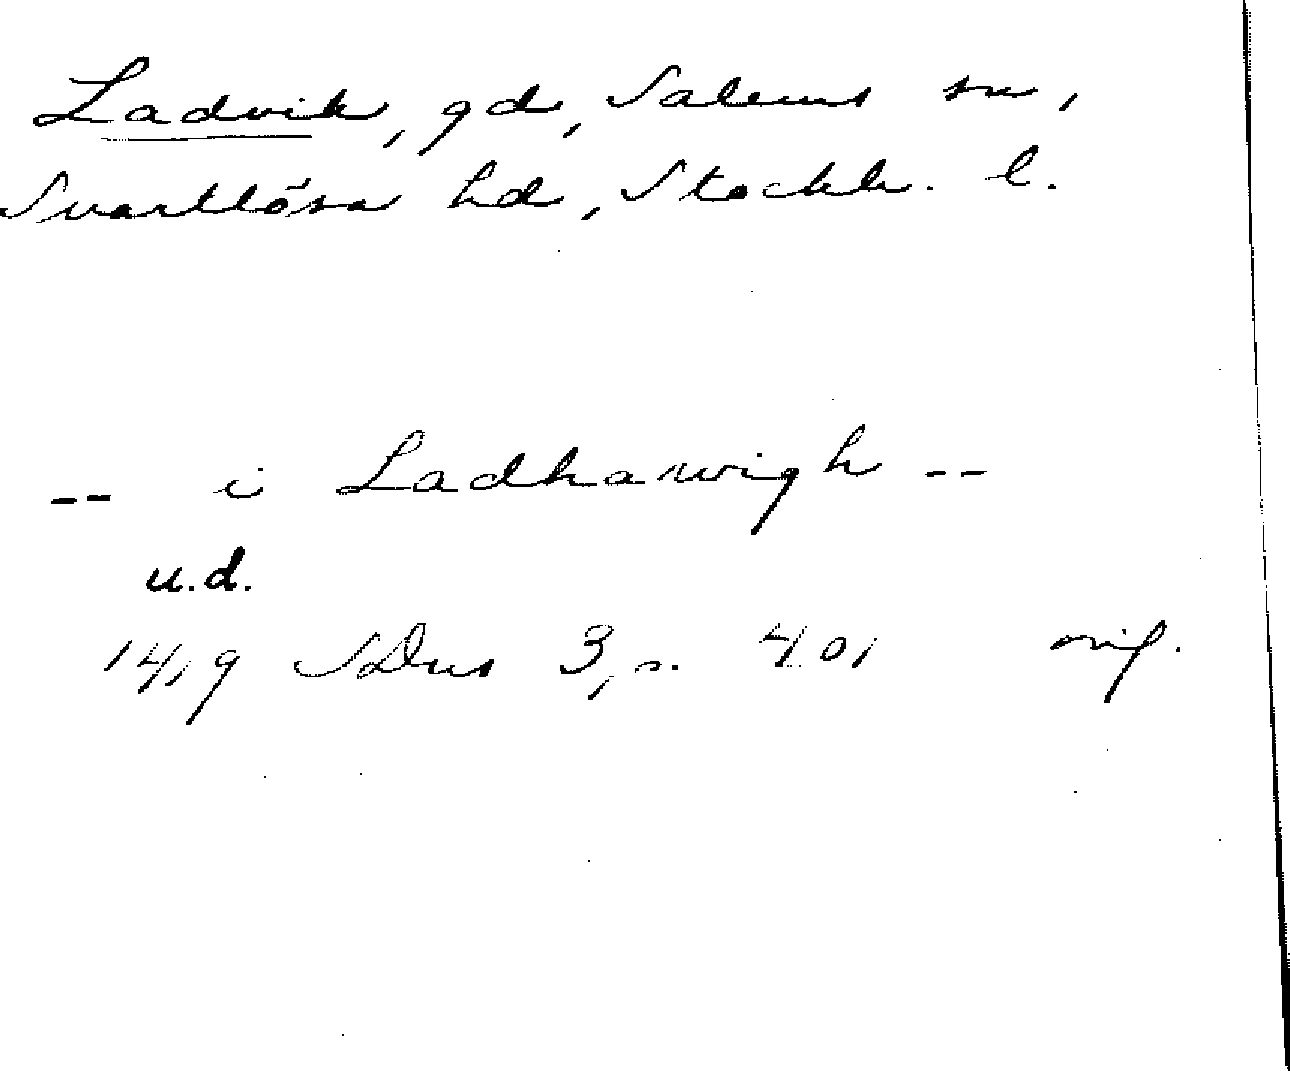 Ladvik, gd, Salems sn,
Svartlösa hd, Stockh. l.
-- i Ladhawigh --
u.d.
1419 SDns 3, s. 401 or.